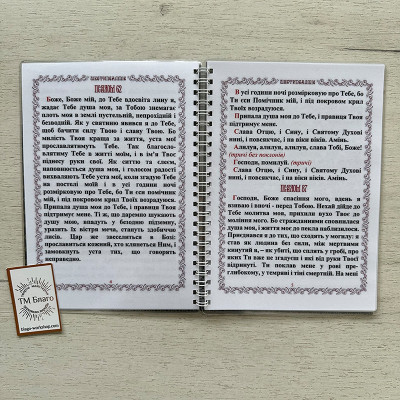 ШЕСТОПСАЛМІЯ
ПСАЛОМ 62
Боже, Боже мій, до Тебе вдосвіта лину я,
жадає Тебе душа моя, за Тобою знемагає
плоть моя в землі пустельній, непрохідній і
безводній. Як у святиню явився я до Тебе,
щоб бачити силу Твою і славу Твою. Бо
милість Твоя краща за життя, уста мої
прославлятимуть Тебе. Так благосло-
витиму Тебе в житті моїм, і в ім'я Твоє
піднесу руки свої. Як ситтю та єлеєм,
наповнюється душа моя, і голосом радості
вихваляють Тебе уста мої, коли згадую Тебе
на постелі моїй і в усі години ночі
розмірковую про Тебе, бо Ти єси Помічник
мій, і під покровом крил Твоїх возрадуюся.
Припала душа моя до Тебе, і правиця Твоя
підтримує мене. Ті ж, що даремно шукають
душу мою, зійдуть у безодню підземну,
уразить їх вістря меча, стануть здобиччю
лисів. Цар же звеселиться в Бозі:
прославиться кожний, хто клянеться Ним, і
замовкнуть уста тих, що говорять
неправедно.
ШЕСТОПСАЛМІЯ
В усі години ночі розмірковую про Тебе, бо
Ти єси Помічник мій, і під покровом крил
Твоїх возрадуюся.
Припала душа моя до Тебе, і правиця Твоя
підтримує мене.
Слава Отцю, і Сину, і Святому Духові
нині, і повсякчас, і на віки віків. Амінь.
Алилуя, алилуя, алилуя, слава Тобі, Боже!
(тричі без поклонів)
Господи, помилуй. (тричі)
Слава Отцю, і Сину, і Святому Духові
нині, і повсякчас, і на віки віків. Амінь.
ПСАЛОМ 87
Господи, Боже спасіння мого, вдень і
вночі взиваю до Тебе. Нехай дійде до
Тебе молитва моя, прихили вухо Твоє до
моління мого. Бо стражданнями сповнилася
душа моя, і життя моє до пекла наблизилося.
Приєднався я до тих, що сходять у могилу; я
став як людина без сили, між мертвими
кинутий я, – як убиті, що сплять у гробі, про
яких Ти вже не згадуєш і які від руки Твоєї
відринуті. Ти поклав мене у рові пре-
глибокому, у темряві і тіні смертній. На мені
ТМ Благо
blago-workshop.com